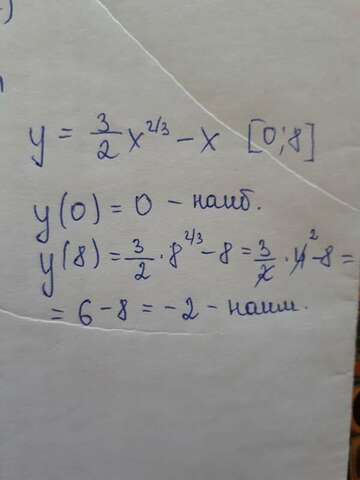 y = 3/2 x^2/3 - x [0;8]
y(0) = 0 - наиб.
y(8) = 3/2 · 8^2/3 - 8 = 3/2 · 4^2 - 8 =
= 6 - 8 = -2 - наим.